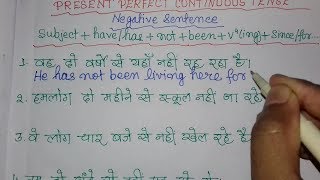 PRESENT PERFECT CONTINUOUS TENSE
Negative Sentence
Subject + have/has + not + been + V⁴(ing) + Since/for...
1. वह दो वर्षो से यहाँ नहीं रह रहा है।
He has not been living here for
2. हमलोग दो महीने से स्कूल नहीं जा रहे
3. वे लोग चार बजे से नहीं खेल रहे है